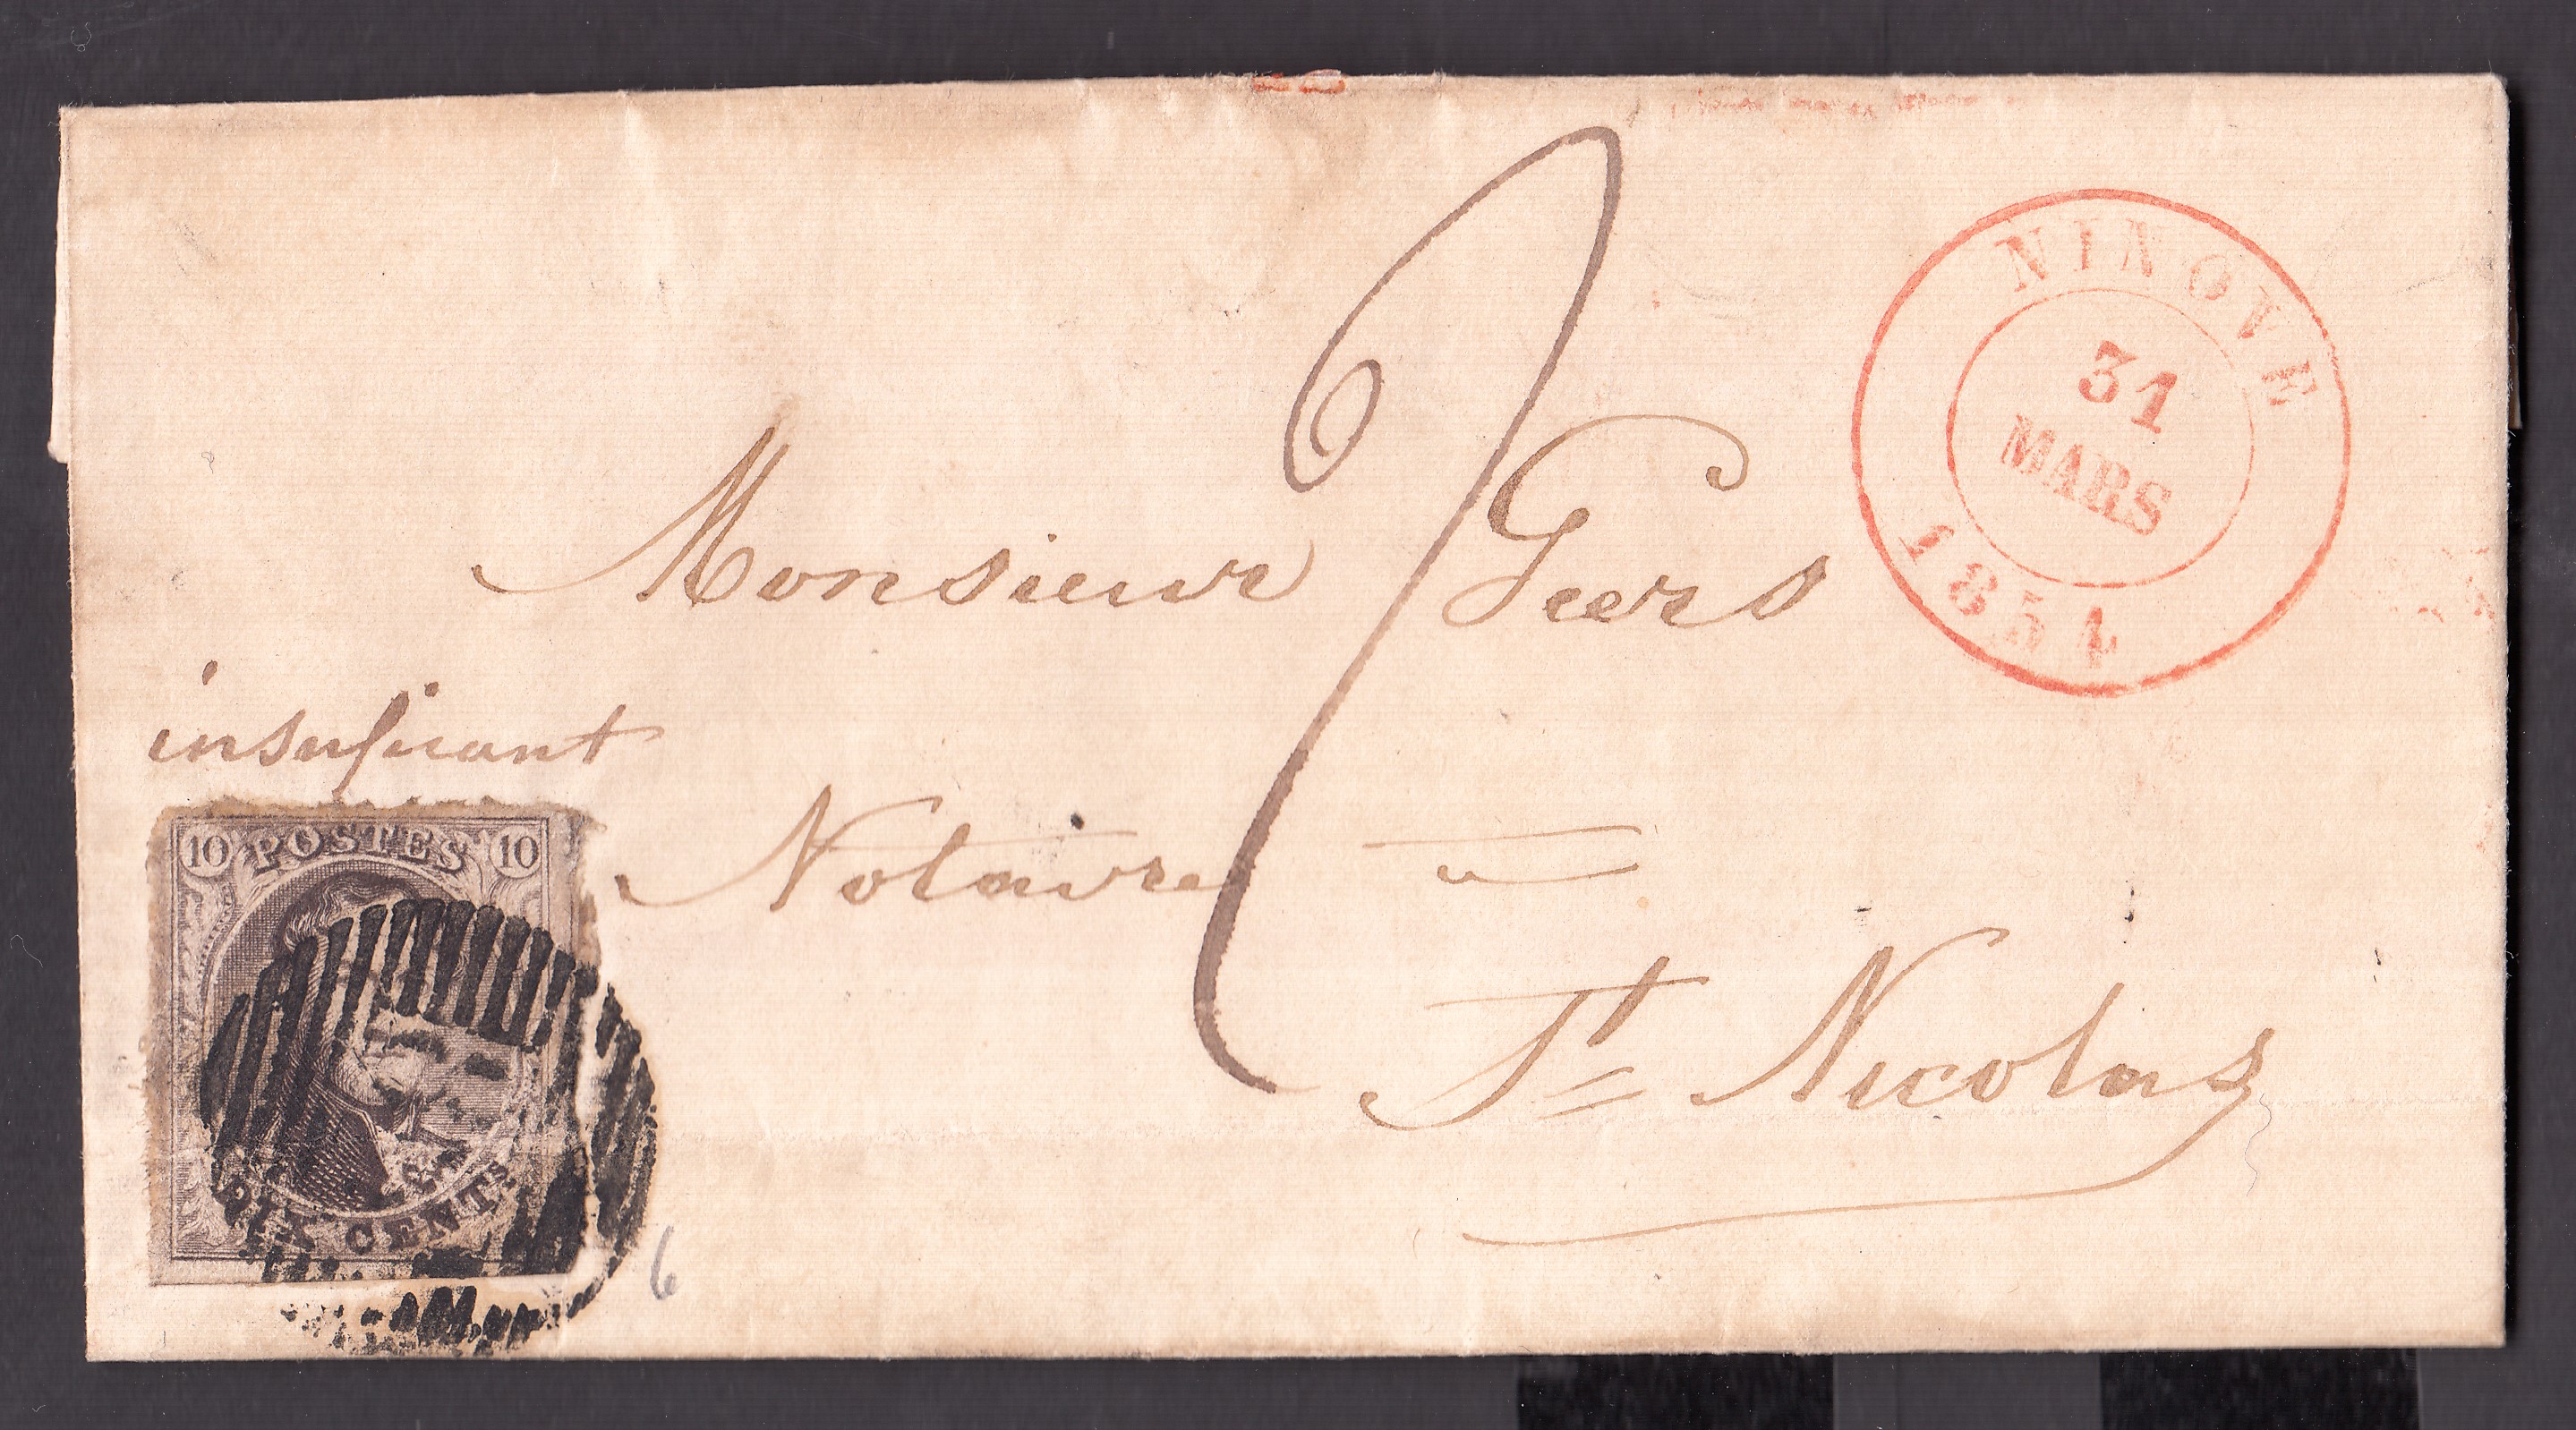 NINOVE
31
MARS
1854
Monsieur Geers
insufisant
Notaire a
St Nicolas
10 POSTES 10
DIX CENTS
6